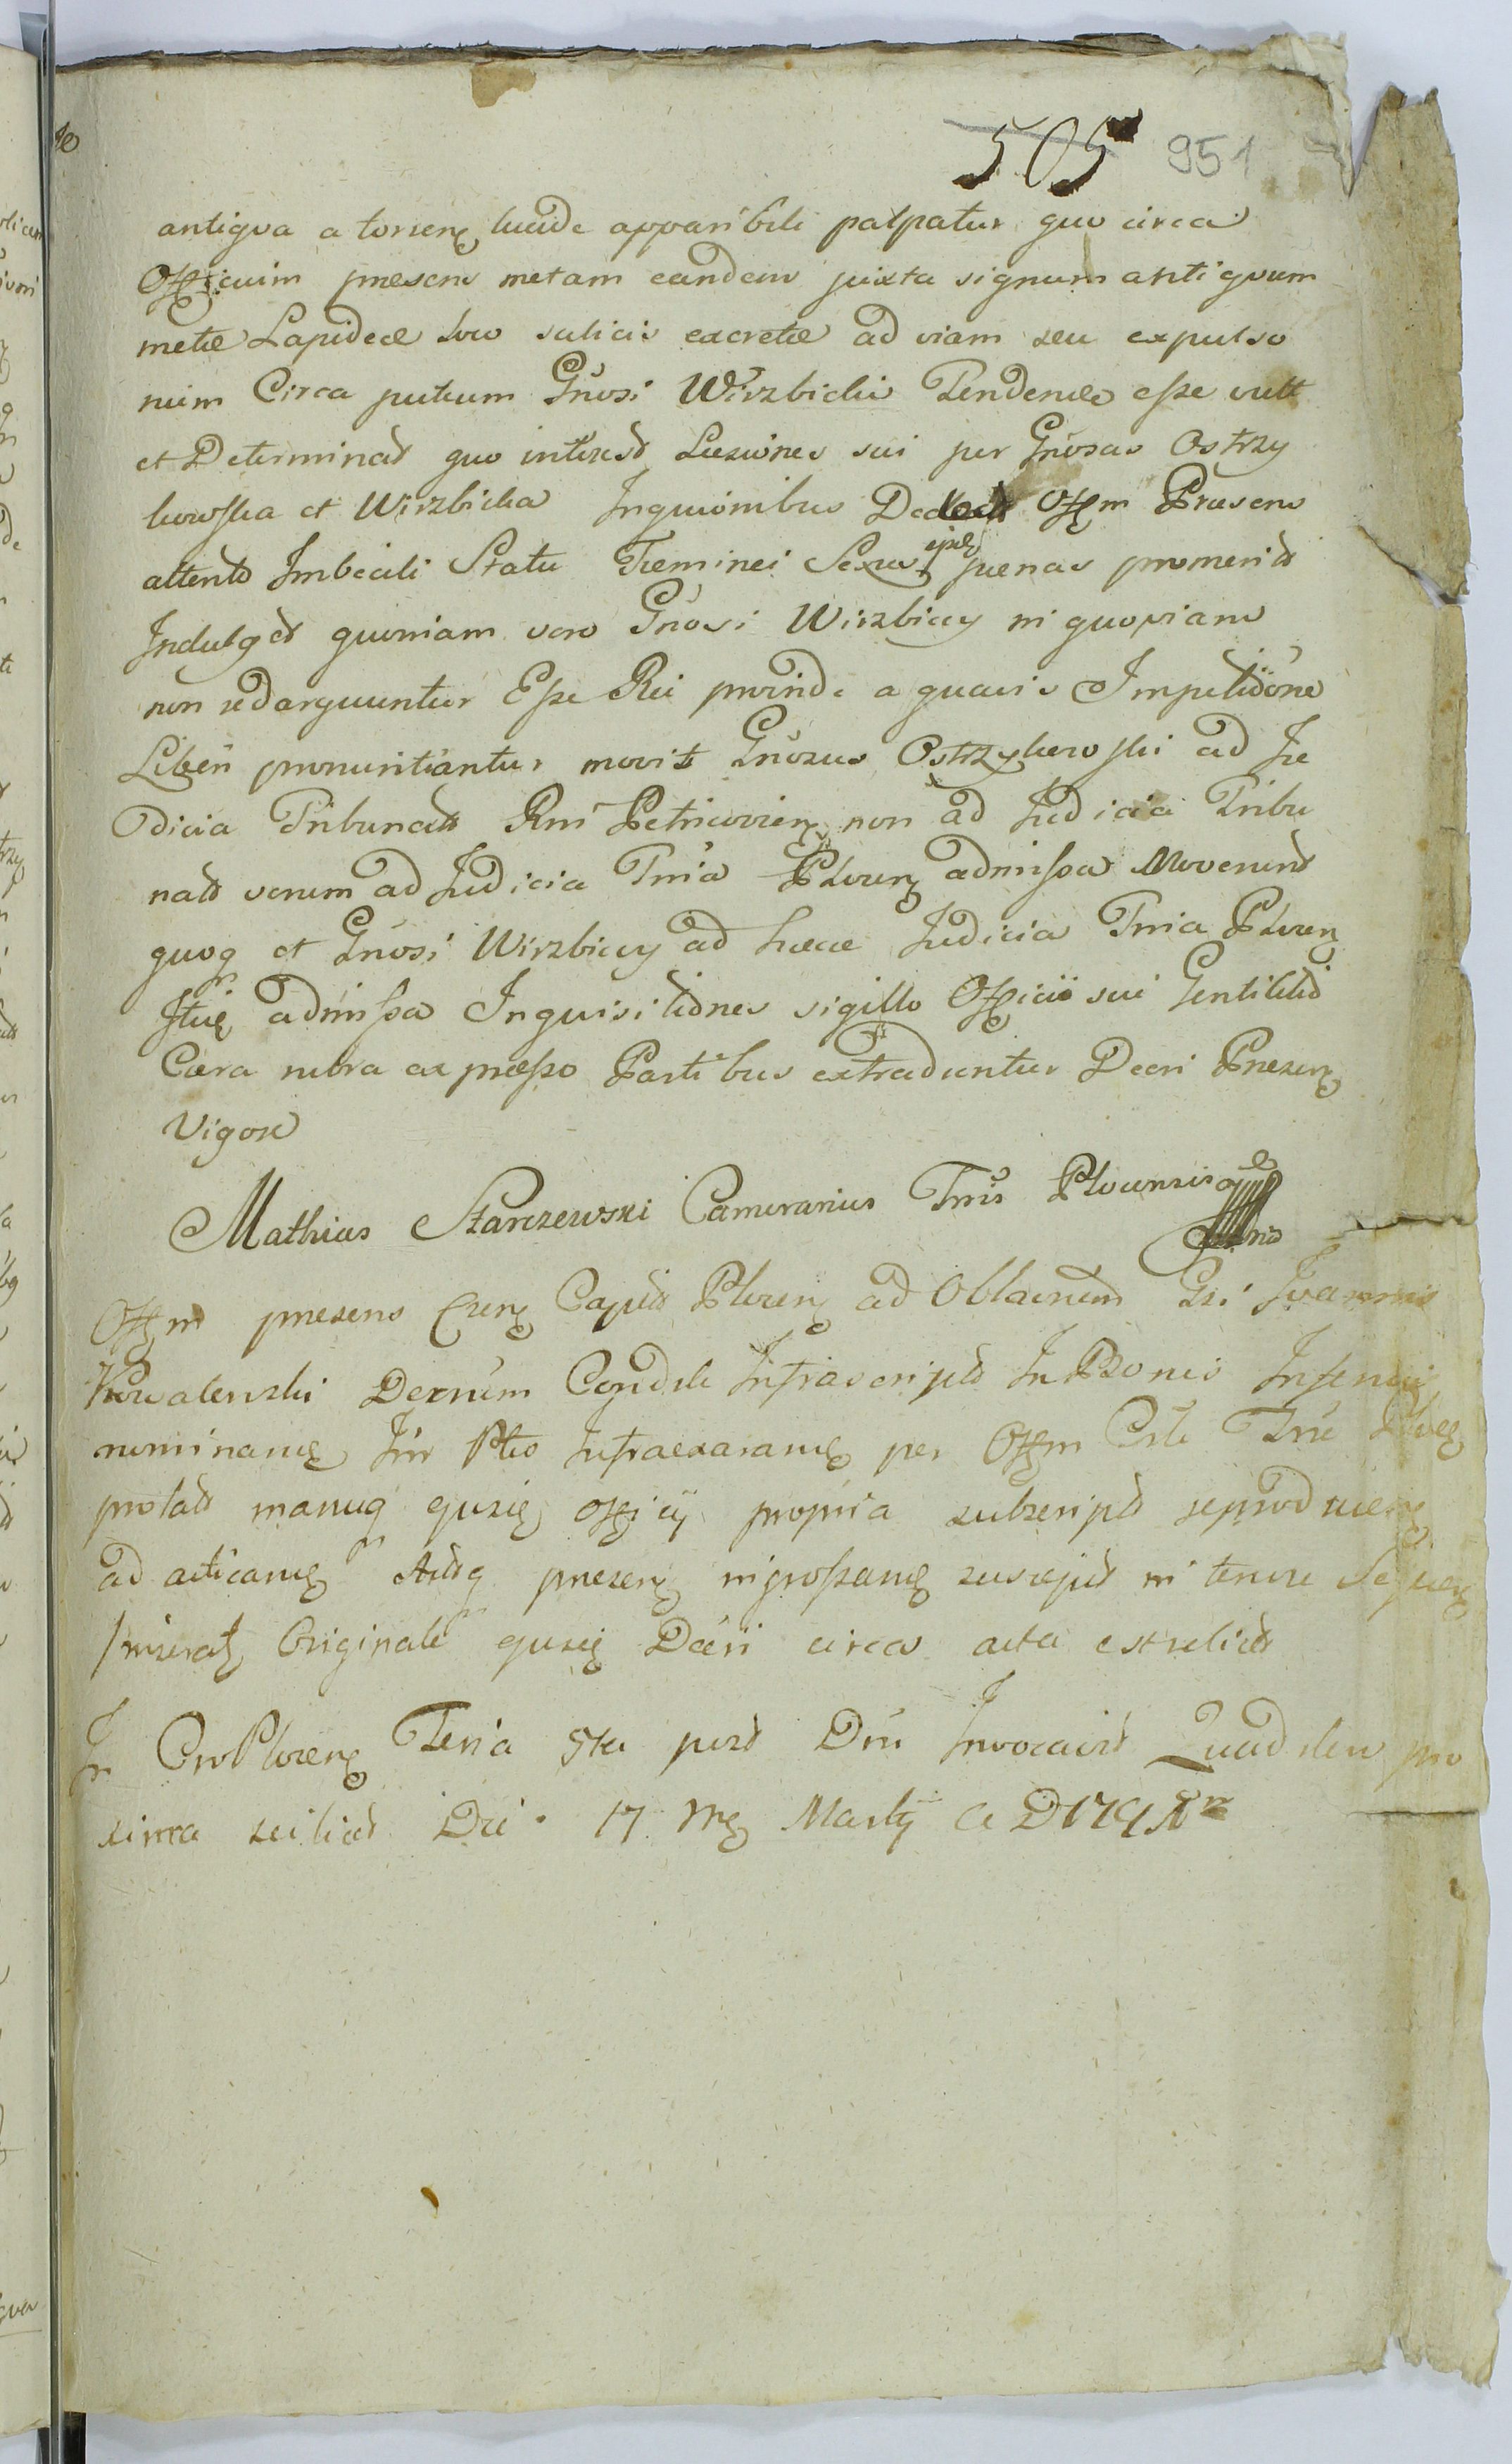 505 951
antiqva a torren lucide apparibili palpatur quo circa
Officium praesens metam eandem juxta signum antiqvum
metae Lapideae loco salicis excretae ad viam seu expulso
rium Circa puteum Gnosi Wirzbicki Tendens esse vult
et Determinat quo interest Laesiones sui per Gnosas Ostrzy
kowska et Wirzbicka Inqusionibus Off̃m Praesens
attento Imbecili Statu Faeminei Sexus ipsis paenas promerit
Indulget quoniam vero Gnosi Wirzbiccy in quopiam
non redarguuntur Esse Rei proinde a quavis Impetitione
Liberi pronuntiantur movit Gnosus Ostrzykowski ad Ju
dicia Tribunalit Rni Petricovien non ad Judicia Tribu
nalt verum ad Judicia Trria Plocen admissa Moverunt
quoq et Gnosi Wirzbiccy ad haec Judicia Trria Plocen
admissa Inquisitiones sigillo Officii sui Gentilitio
Caera rubra expresso Partibus extraduntur Decri Praesen
Vigore
Mathias Starczewski Camerarius Trris Plocensis
Off̃m praesens Capit Plocen ad Oblaoñem Gsi Joannis
Kowalewski Decrum Condsle Infrascript In Bonis Inferius
nominan Inr Ptes Infraexaran per Off̃m Trre Ploc
prolat manuq ejusd Officij propria subscript reproducen
ad acticand Actisq praesen ingrossand suscepit in tenore Sequen
Originale ejusd Decri circa acta est relict
In Cro Plocen Feria 5ta post Dni Invocavit Quadslem pro
xima scilicet Die 17 Mg Martij A D 179